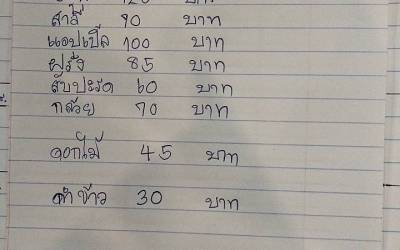 120 บาท
สาลี่ 90 บาท
แอปเปิ้ล 100 บาท
ฝรั่ง 85 บาท
สับปะรด 60 บาท
กล้วย 70 บาท
ดอกไม้ 45 บาท
ค่าข้าว 30 บาท